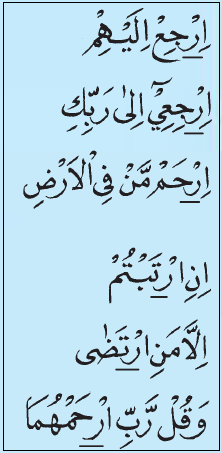 اِرْجِعْ اِلَيْهِمْ
اِرْجِعِيْۤ اِلٰى رَبِّكِ
اِرْحَمْ مَّنْ فِى الْاَرْضِ
اِنِ ارْتَبْتُمْ
اِلَّا مَنِ ارْتَضٰى
وَقُلْ رَّبِّ ارْحَمْهُمَا